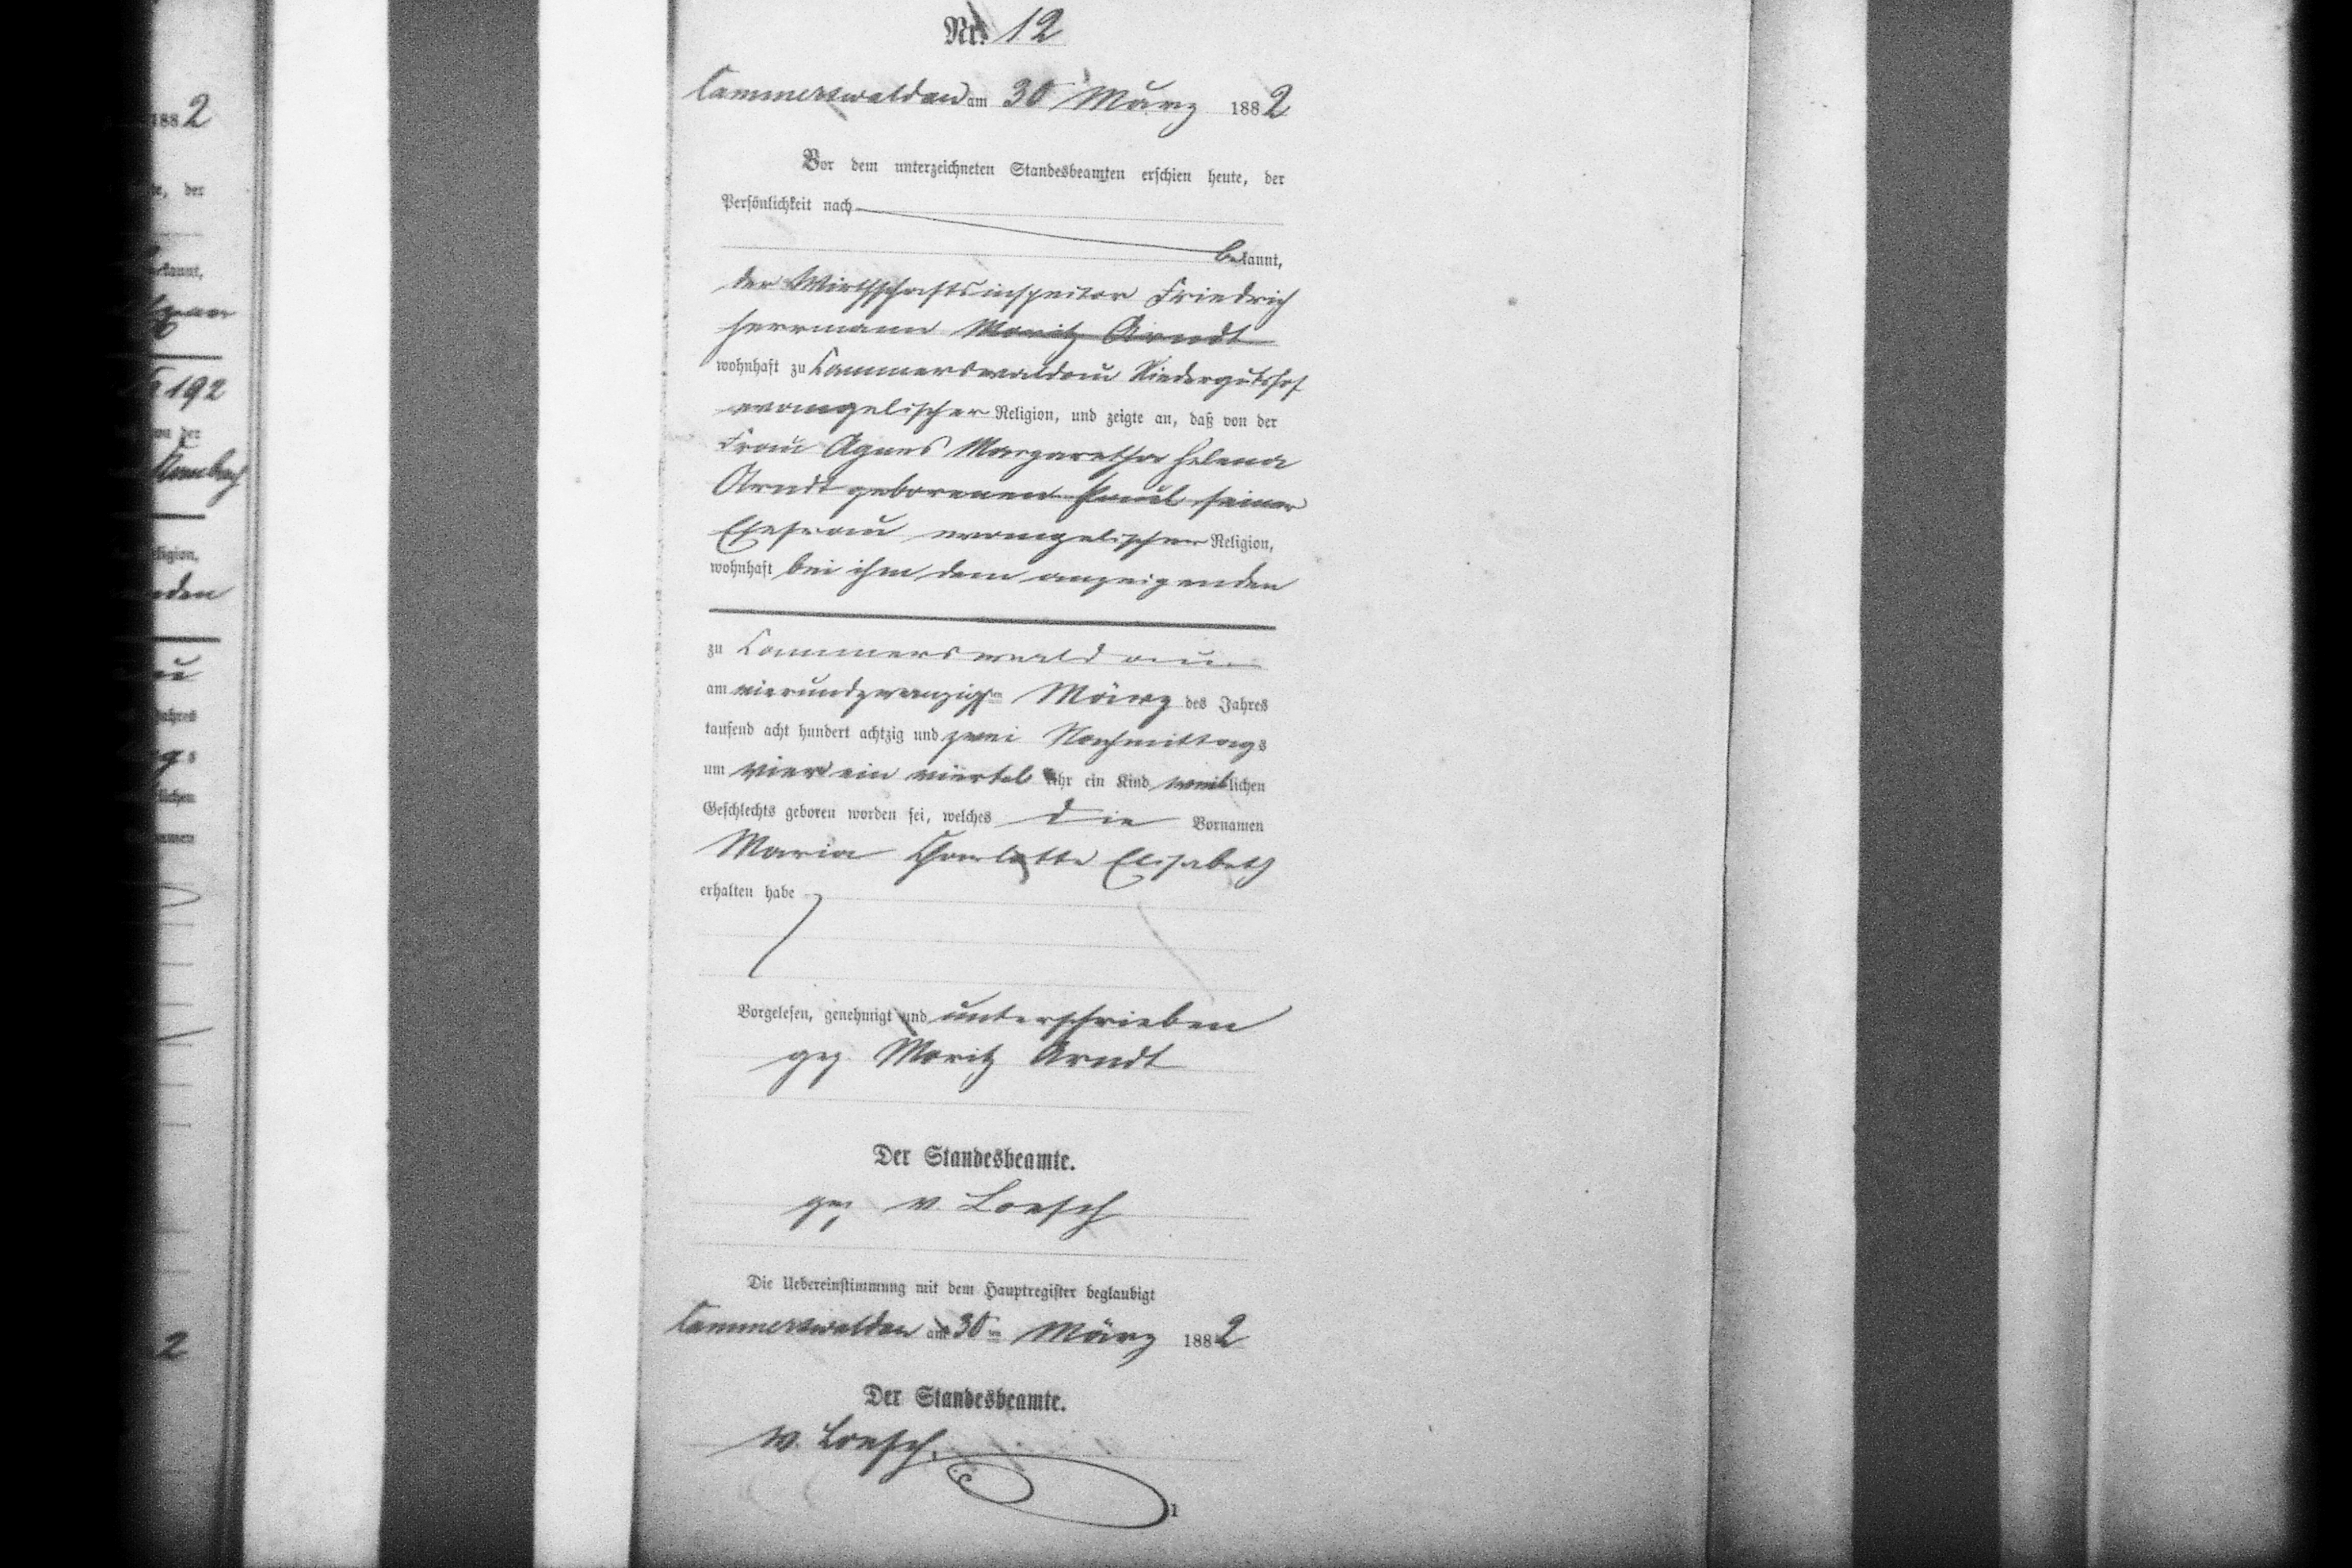 Nr. 12
Cammerswaldau am 30 März 1882
Vor dem unterzeichneten Standesbeamten erschien heute, der
Persönlichkeit nach
bekannt,
der Wirthschaftsinspector Friedrich
Herrmann Moritz Arndt
wohnhaft zu Cammerswaldau Niedergutshof
evangelischer Religion, und zeigte an, daß von der
Frau Agnes Margaretha Helena
Arndt geborenen Paul seiner
Ehefrau evangelischer Religion,
wohnhaft bei ihm dem anzeigenden
zu Cammerswaldau
am vierundzwanzigsten März des Jahres
tausend acht hundert achtzig und zwei Nachmittags
um vier ein viertel Uhr ein Kind weiblichen
Geschlechts geboren worden sei, welches die Vornamen
Maria Charlotte Elisabeth
erhalten habe
Vorgelesen, genehmigt und unterschrieben
gez. Moritz Arndt
Der Standesbeamte.
gez v. Loesch
Die Uebereinstimmung mit dem Hauptregister beglaubigt
Cammerswaldau am 30ten März 1882
Der Standesbeamte.
v. Loesch.
1
1882
te, der
bekannt,
192
von der
Religion,
Jahres
lichen
2